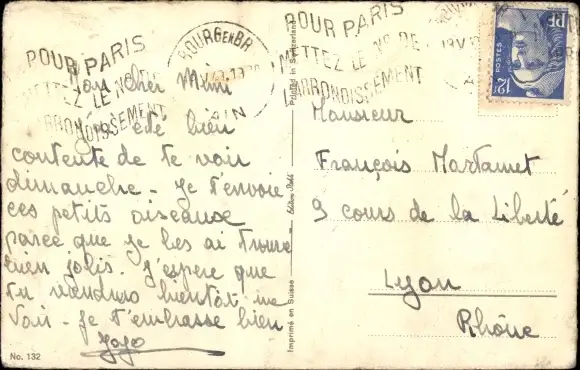 POUR PARIS
METTEZ LE N°
ARRONDISSEMENT
BOURG EN BR
AIN
POUR PARIS
METTEZ LE N° DE
L'ARRONDISSEMENT
POSTES
RF
12F
Mon cher Mimi
J'ai été bien
contente de te voir
dimanche - Je t'envoie
ces petits oiseaux
parce que je les ai trouvé
bien jolis. J'espère que
tu viendras bientôt me
voir - Je t'embrasse bien
Jojo
No. 132
Printed in Switzerland
Imprimé en Suisse
Monsieur
François Martamet
9 cours de la Liberté
Lyon
Rhône